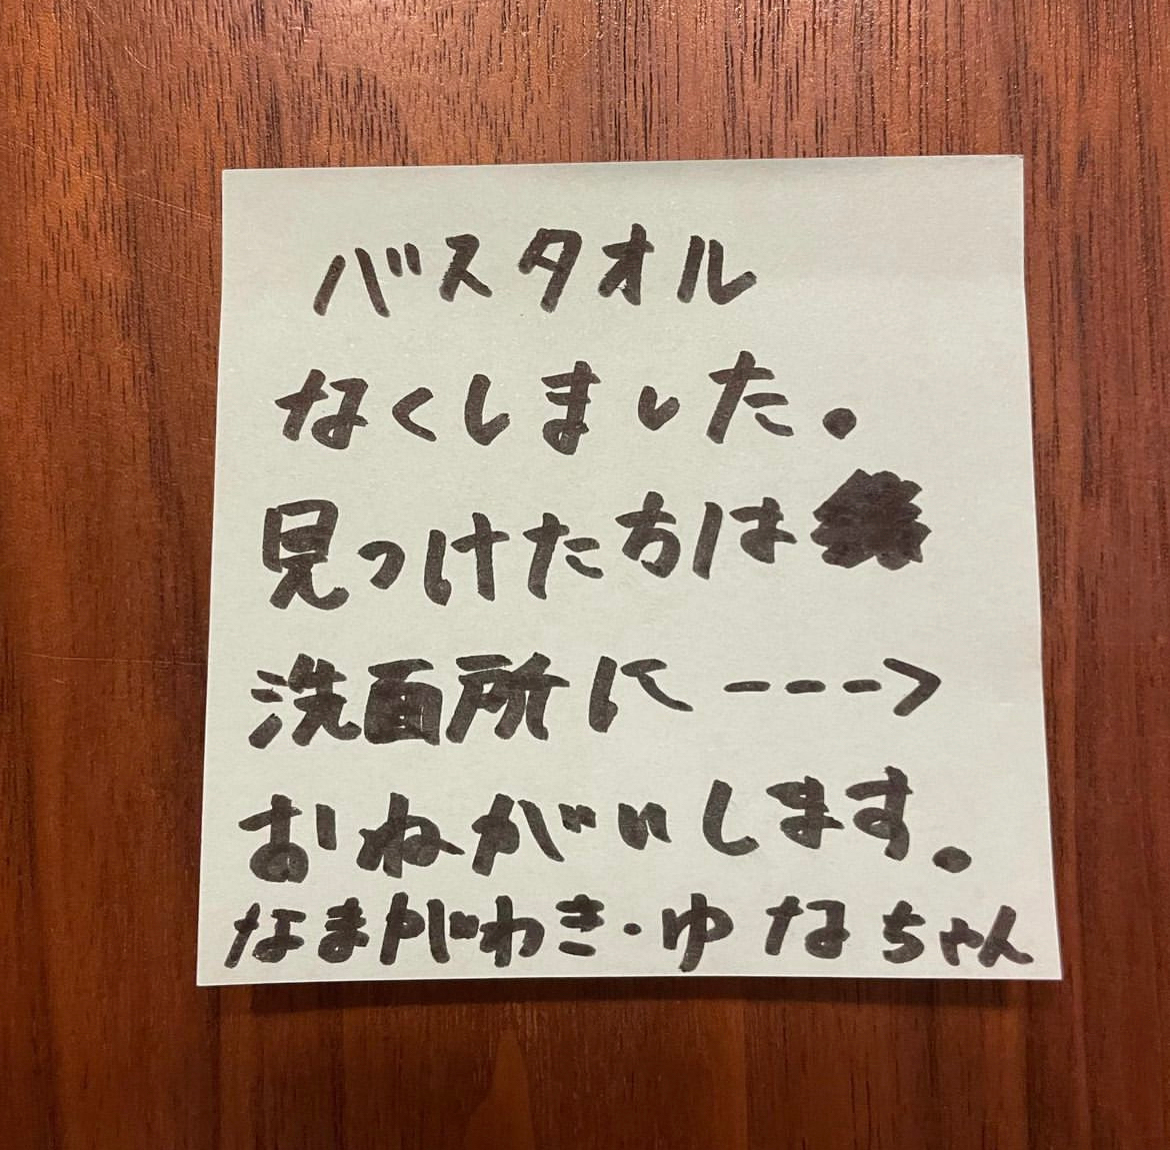 バスタオル
なくしました。
見つけた方は
洗面所に --->
おねがいします。
なまがわき・ゆなちゃん